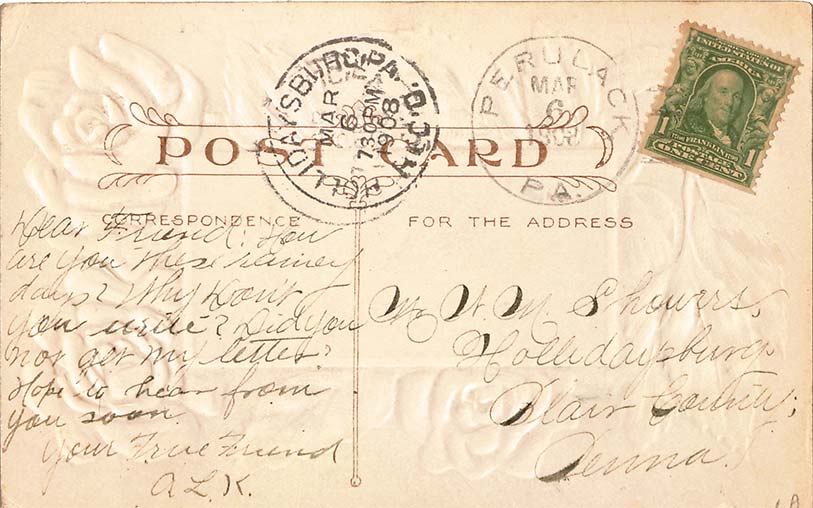 HOLLIDAYSBURG, PA.
MAR
6
730PM
1908
REC'D.
PERULACK
MAR
6
1908
PA.
UNITED STATES OF AMERICA
1 1
FRANKLIN
POSTAGE
ONE CENT
POST CARD
CORRESPONDENCE
FOR THE ADDRESS
Dear Friend. How
are you these rainey
days? Why Don't
you write? Did you
not get my letter?
Hope to hear from
you soon.
Your True Friend
A.L.K.
W. M. Showers,
Hollidaysburg,
Blair County,
Penna.